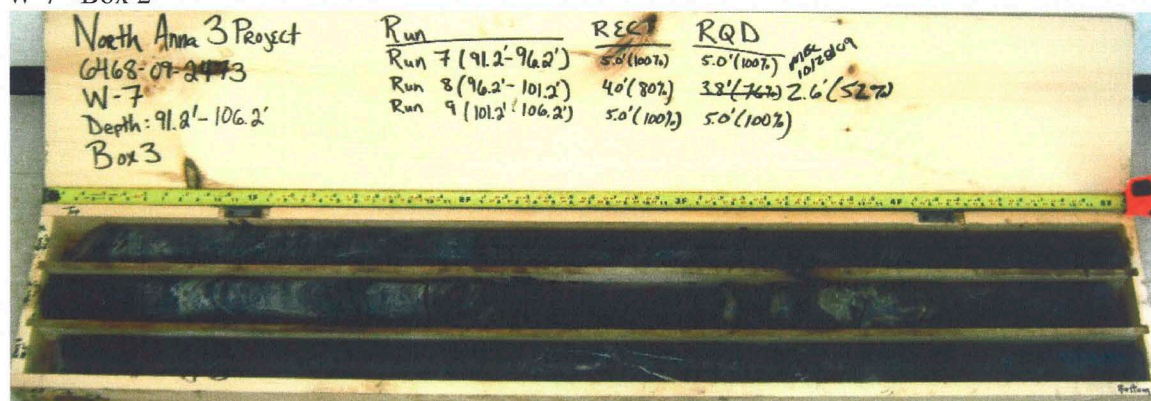 W-7 Box 2
North Anna 3 Project
6468-09-2473
W-7
Depth: 91.2'-106.2'
Box 3
Run REC RQD
Run 7 (91.2'-96.2') 5.0'(100%) 5.0'(100%)
Run 8 (96.2'-101.2') 4.0'(80%) 3.8'(76%) 2.6'(52%)
Run 9 (101.2'-106.2') 5.0'(100%) 5.0'(100%)
1F 2F 3F 4F 5F
Top
Bottom